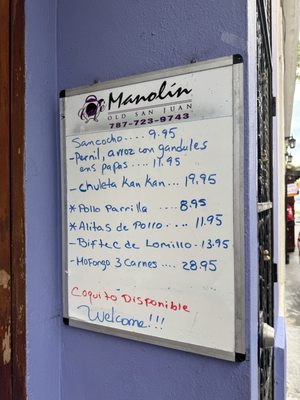 Manolín
OLD SAN JUAN
787-723-9743
Sancocho.... 9.95
-Pernil, arroz con gandules
ens papas .... 17.95
-chuleta Kan Kan... 19.95
*Pollo Parrilla .... 8.95
*Alitas de Pollo .... 11.95
-Biftec de Lomillo..13.95
-Mofongo 3 Carnes .... 28.95
Coquito Disponible
Welcome!!!